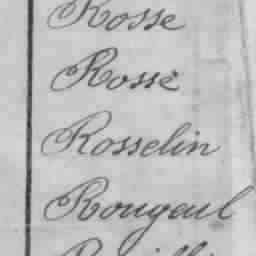 Rosse
Rossé
Rosselin
Rougeul